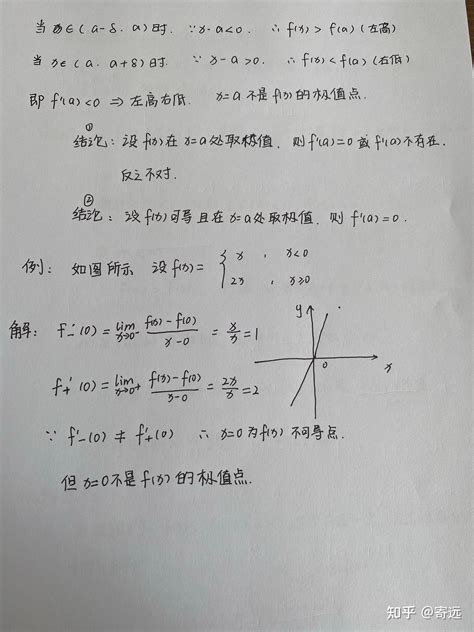 当 x∈(a-δ, a)时, ∵ x-a<0, ∴ f(x) > f(a) (左高)
当 x∈(a, a+δ)时, ∵ x-a>0, ∴ f(x) < f(a) (右低)
即 f'(a)<0 ⇒ 左高右低. x=a 不是f(x)的极值点.
①
结论: 设 f(x)在 x=a处取极值, 则f'(a)=0 或 f'(a)不存在.
反之不对.
②
结论: 设f(x)可导且在x=a处取极值, 则 f'(a)=0.
例: 如图所示 设f(x)= { x , x<0
2x , x≥0
解: f₋'(0) = lim x→0⁻ (f(x)-f(0))/(x-0) = x/x = 1
f₊'(0) = lim x→0⁺ (f(x)-f(0))/(x-0) = 2x/x = 2
y
0
x
∵ f'₋(0) ≠ f'₊(0) ∴ x=0为f(x)不可导点.
但 x=0不是f(x)的极值点.
知乎 @寄远